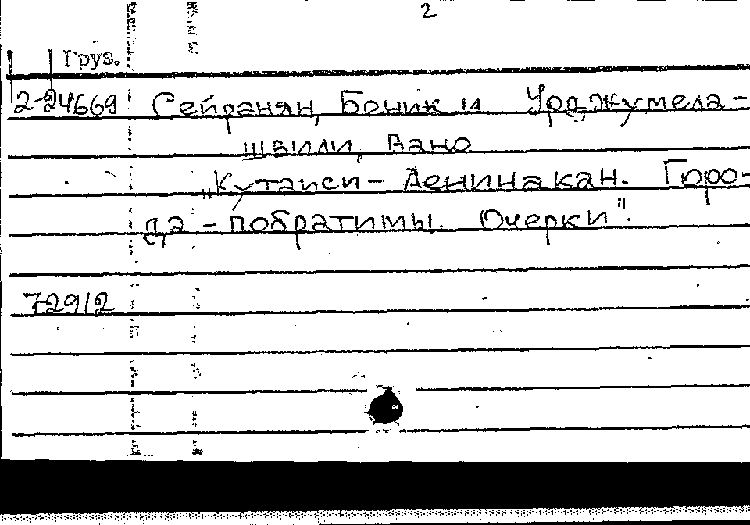 2
Груз.
2-24669 Сейранян, Боник и Урджумела-
швили, Вано
„Кутаиси - Ленинакан. Горо-
да - побратимы. Очерки".
7-2912